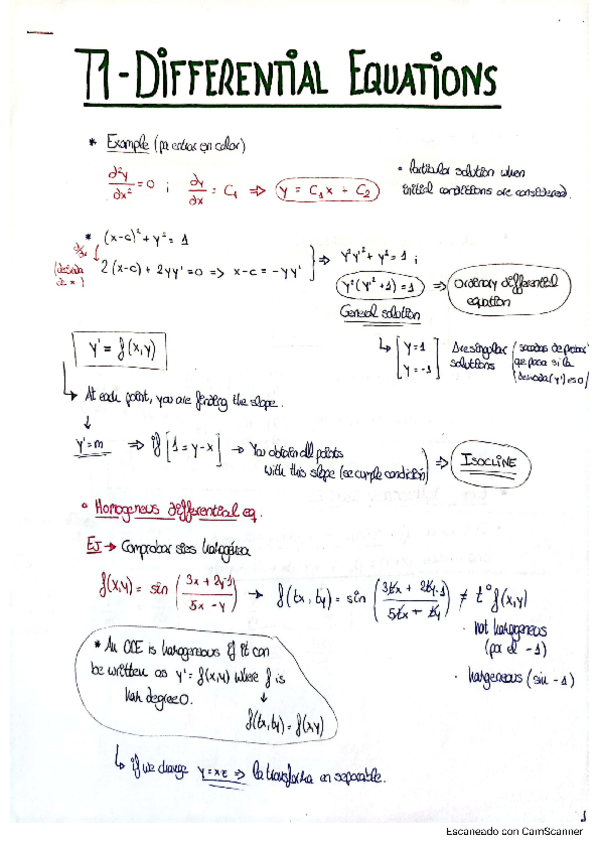 T1 - DIFFERENTIAL EQUATIONS
* Example (pa entrar en calor)
∂²y/∂x² = 0 ; ∂y/∂x = C₁ ⇒ y = C₁x + C₂
• Particular solution when
initial conditions are considered.
* (x-c)² + y² = 1
(derivada
de x)
2(x-c) + 2yy' = 0 ⇒ x-c = -yy'
⇒ y²y'² + y² = 1 ;
y²(y'²+1) = 1 ⇒ Ordinary differential
equation
General solution
↳ [ y=1
y=-1 ]
Are singular
solutions
(sacadas de probar
que pasa si la
derivada (y') es 0)
y' = f(x,y)
↳ At each point, you are finding the slope.
↓
y'=m ⇒ if [1 = y-x] → You obtain all points
with this slope (se cumple condición) ⇒ ISOCLINE
• Homogeneus differential eq.
EJ → Comprobar si es homogénea
f(x,y) = sin (3x + 2y-1 / 5x - y) → f(tx, ty) = sin (3tx + 2ty-1 / 5tx - ty) ≠ t⁰ f(x,y)
· not homogeneous
(por el -1)
· homogeneous (sin -1)
* An ODE is homogeneous if it can
be written as y' = f(x,y) where f is
hom degree 0.
↓
f(tx,ty) = f(x,y)
↳ if we change y=xz ⇒ la transforma en separable.
1
Escaneado con CamScanner